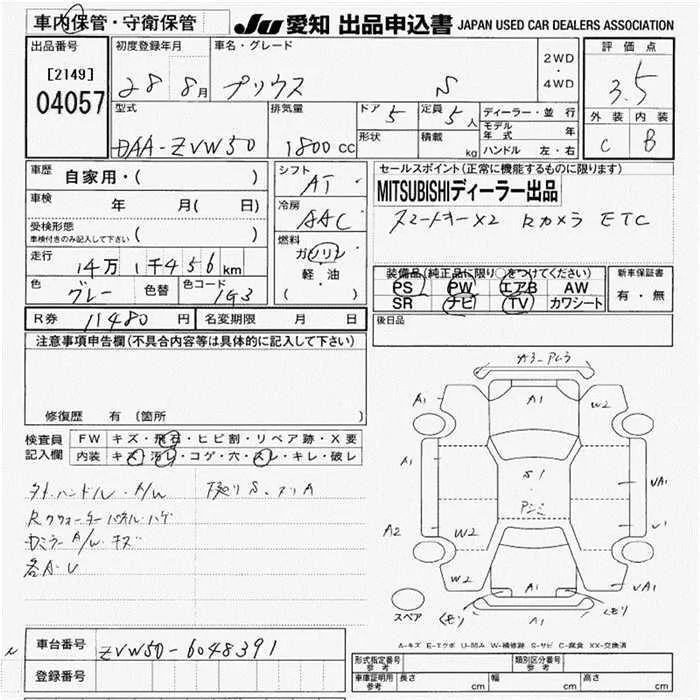 車内保管・守衛保管
JU 愛知 出品申込書 JAPAN USED CAR DEALERS ASSOCIATION
出品番号
[2149]
04057
初度登録年月
28 8月
車名・グレード
プリウス S
2WD・4WD
評価点
3.5
外装 内装
C B
型式
DAA-ZVW50
排気量
1800cc
ドア 5
定員 5人
形状
積載 kg
ディーラー・並行
モデル年式 年
ハンドル 左・右
車歴 自家用・( )
車検 年 月( 日)
受検形態
車検付きのみ記入して下さい ( )
走行 14万1千456km
色 グレー 色替 色コード 1G3
シフト
AT
冷房
AAC
燃料
ガソリン
軽・油
( )
セールスポイント(正常に機能するものに限ります)
MITSUBISHIディーラー出品
スマートキーX2 Rカメラ ETC
装備品(純正品に限り○をつけてください)
PS PW エアB AW
SR ナビ TV カワシート
新車保証書
有・無
R券 11480円 名変期限 月 日
後日品
注意事項申告欄(不具合内容等は具体的に記入して下さい)
修復歴 有 (箇所 )
検査員記入欄
FW キズ・飛石・ヒビ割・リペア跡・X要
内装 キズ・汚レ・コゲ・穴・スレ・キレ・破レ
外ハンドル・A/W
下廻りS、
Rクウォーターパネルハゲ
ミラーA/W、キズ
各A・U
A1 A1 W2
A1 S1 A1
A2 W2 W2 A1 A1
A1
スペア
A-キズ E-エクボ U-凹み W-補修跡 S-サビ C-腐食 XX-交換済
車台番号 ZVW50-6048391
登録番号
形式指定番号 参考
類別区分番号 参考
車庫証明用 参考 長さ cm 幅 cm 高さ cm